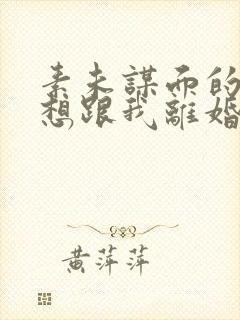 素未謀而的
想跟我離婚
黃萍萍